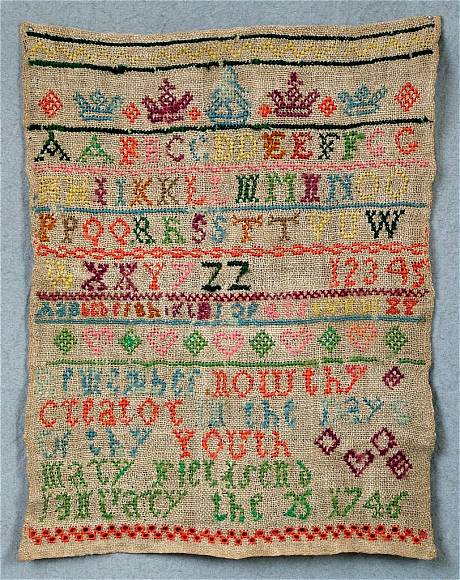 A A B B C C D D E E F F G G
H H I I K K L L M M N N O O
P P Q Q R R S S T T V U W
W X X Y Y Z Z 1 2 3 4 5
remember now thy
creator in the days
of thy Youth
mary Fieldsend
January the 25 1746